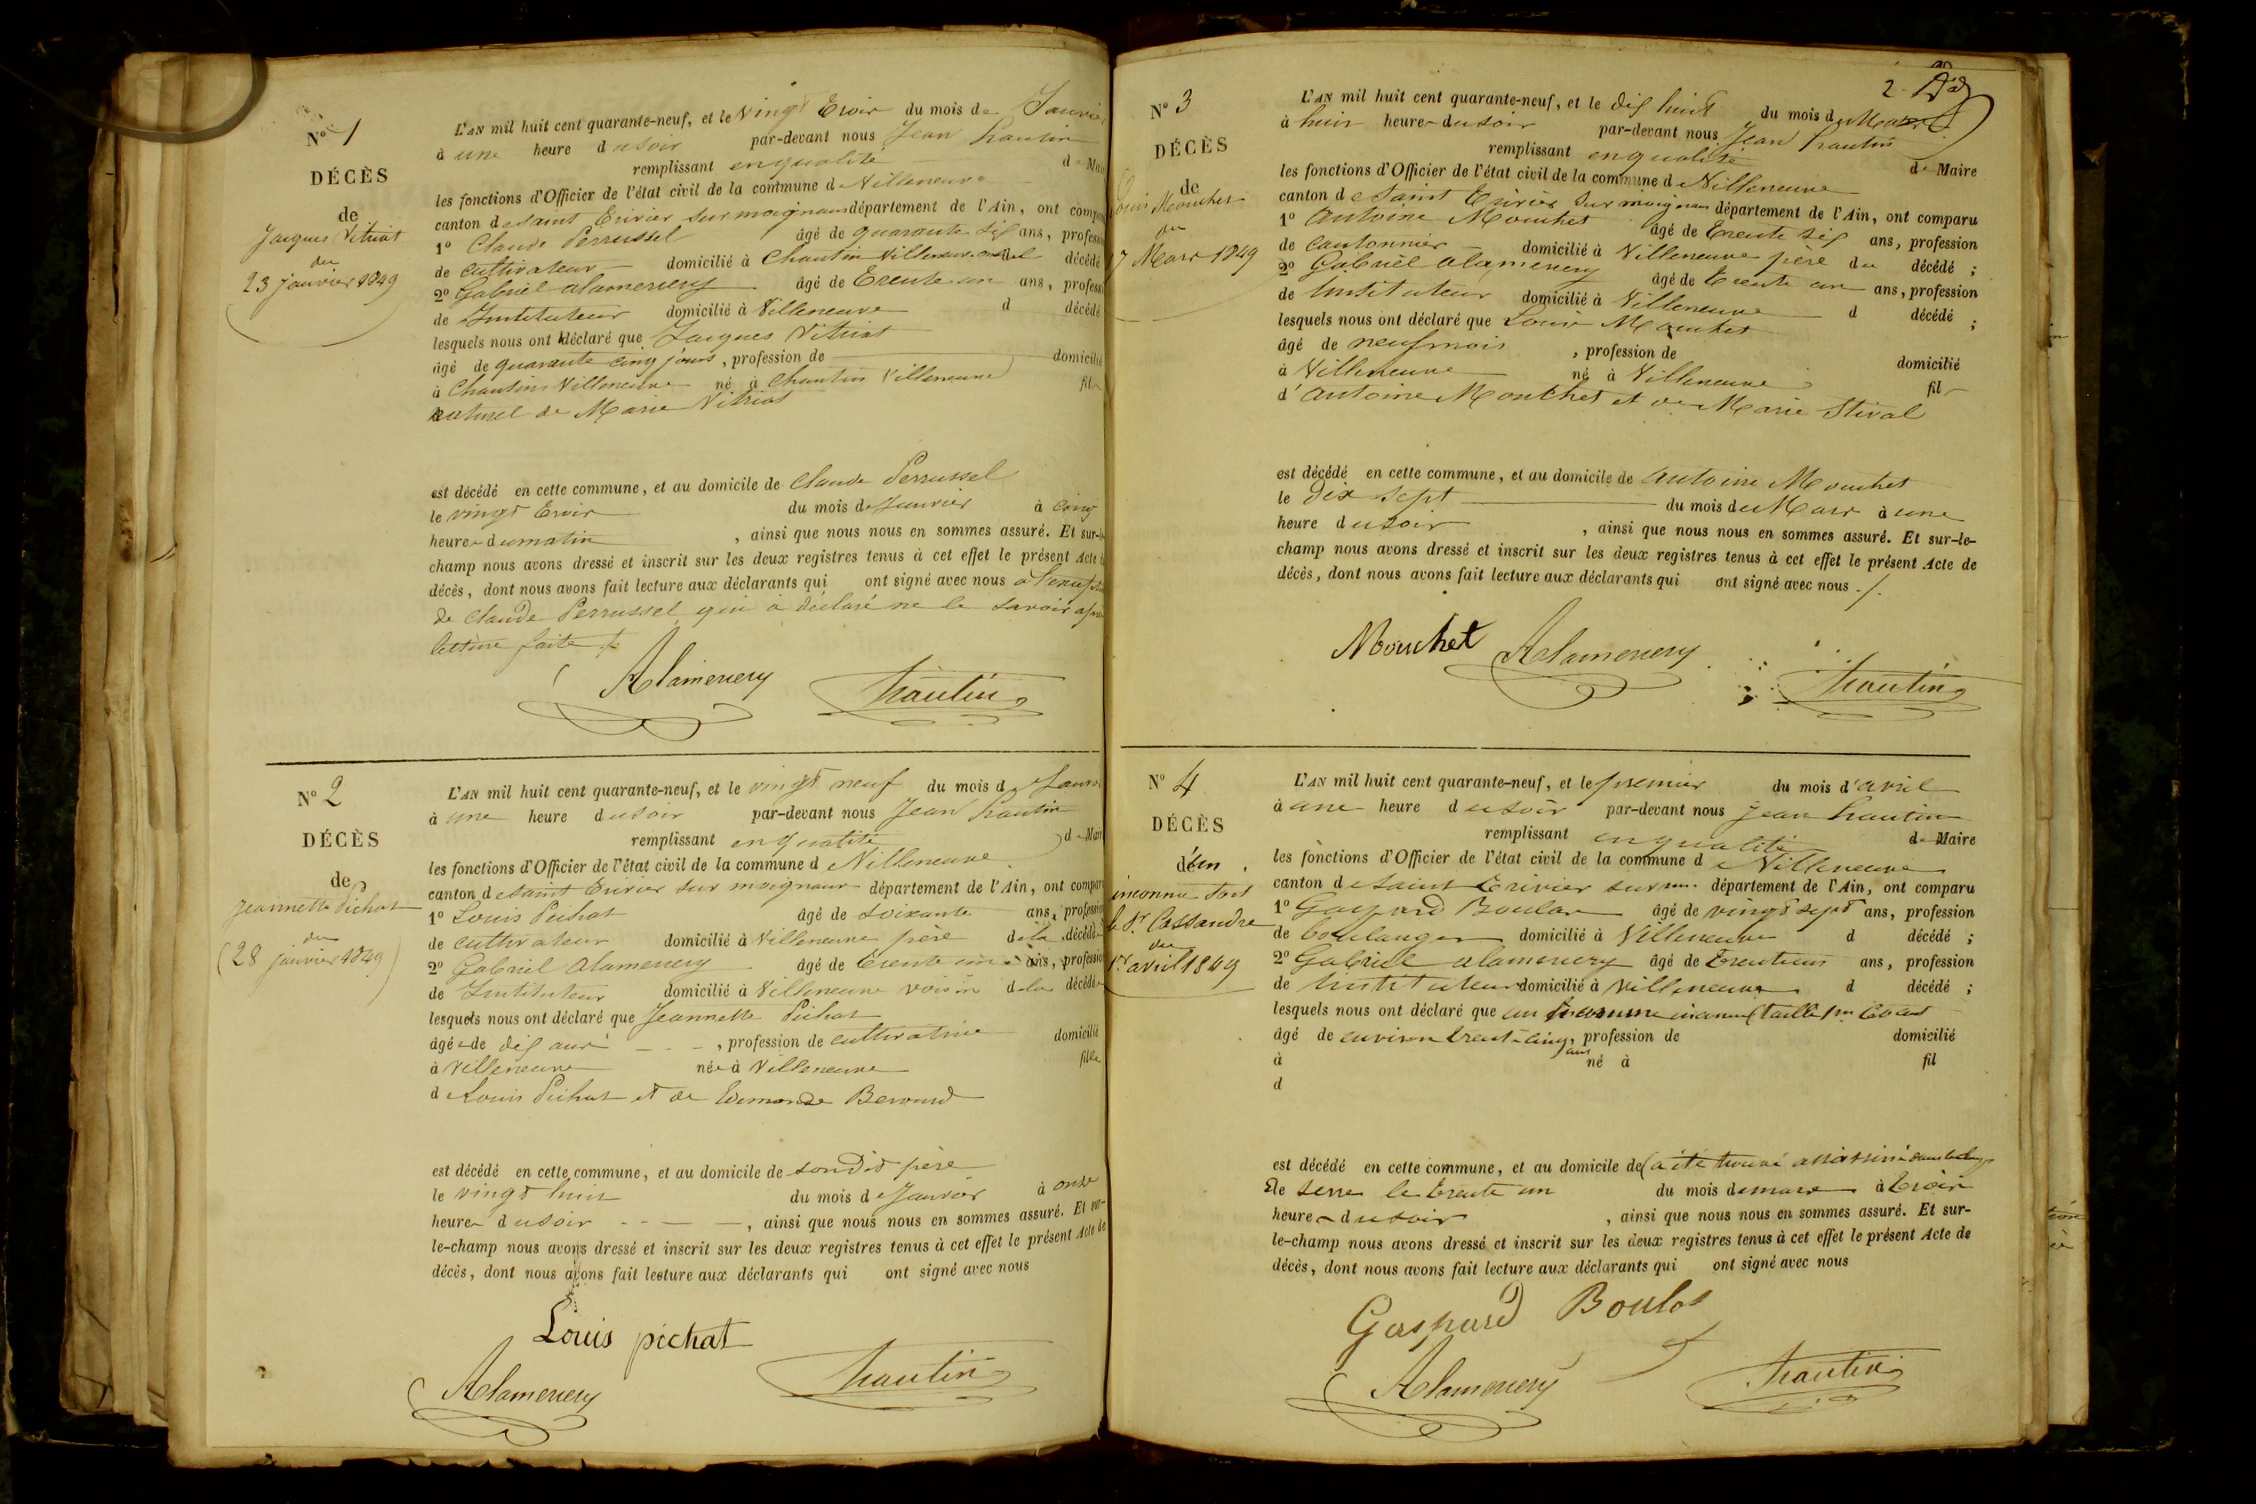 N° 1
DÉCÈS
de
Jacques Vitriat
du
23 janvier 1849
L'AN mil huit cent quarante-neuf, et le vingt trois du mois de Janvier
à une heure du soir par-devant nous Jean
remplissant en qualité de Maire
les fonctions d'Officier de l'état civil de la commune de Villeneuve
canton de Saint Trivier sur moignans département de l'Ain, ont comparu
1° Claude Perrussel âgé de quarante six ans, profession
de cultivateur domicilié à Chantin Villeneuve décédé
2° Gabriel Alamercery âgé de trente un ans, profession
de Instituteur domicilié à Villeneuve d décédé
lesquels nous ont déclaré que Jacques Vitriat
âgé de quarante cinq jours, profession de domicilié
à Chantins Villeneuve né à Chantin Villeneuve fils
naturel de Marie Vitriat
est décédé en cette commune, et au domicile de Claude Perrussel
le vingt trois du mois de Janvier à cinq
heures du matin, ainsi que nous nous en sommes assuré. Et sur-le-
champ nous avons dressé et inscrit sur les deux registres tenus à cet effet le présent Acte de
décès, dont nous avons fait lecture aux déclarants qui ont signé avec nous
de Claude Perrussel qui a déclaré ne le savoir après
lecture faite
Alamercery
N° 2
DÉCÈS
de
Jeannette Pichat
du
(28 janvier 1849)
L'AN mil huit cent quarante-neuf, et le vingt neuf du mois de Janvier
à une heure du soir par-devant nous Jean
remplissant en qualité de Maire
les fonctions d'Officier de l'état civil de la commune d Villeneuve
canton de Saint Trivier sur moignans département de l'Ain, ont comparu
1° Louis Pichat âgé de soixante ans, profession
de cultivateur domicilié à Villeneuve père de la décédée
2° Gabriel Alamercery âgé de trente un ans, profession
de Instituteur domicilié à Villeneuve voisin de la décédée
lesquels nous ont déclaré que Jeannette Pichat
âgée de dix ans, profession de cultivatrice domicilié
à Villeneuve née à Villeneuve fille
de Louis Pichat et de
est décédé en cette commune, et au domicile de son dit père
le vingt huit du mois de Janvier à onze
heures du soir, ainsi que nous nous en sommes assuré. Et sur-
le-champ nous avons dressé et inscrit sur les deux registres tenus à cet effet le présent Acte de
décès, dont nous avons fait lecture aux déclarants qui ont signé avec nous
Louis pichat
Alamercery
2
N° 3
DÉCÈS
de
Louis Mouchet
du
17 Mars 1849
L'AN mil huit cent quarante-neuf, et le dix huit du mois de Mars
à huit heures du soir par-devant nous Jean
remplissant en qualité de Maire
les fonctions d'Officier de l'état civil de la commune d Villeneuve
canton de Saint Trivier sur moignans département de l'Ain, ont comparu
1° Antoine Mouchet âgé de trente six ans, profession
de cantonnier domicilié à Villeneuve père du décédé ;
2° Gabriel Alamercery âgé de trente un ans, profession
de Instituteur domicilié à Villeneuve d décédé ;
lesquels nous ont déclaré que Louis Mouchet
âgé de neuf mois, profession de domicilié
à Villeneuve né à Villeneuve fils
d'Antoine Mouchet et de Marie
est décédé en cette commune, et au domicile de Antoine Mouchet
le dix sept du mois de Mars à une
heure du soir, ainsi que nous nous en sommes assuré. Et sur-le-
champ nous avons dressé et inscrit sur les deux registres tenus à cet effet le présent Acte de
décès, dont nous avons fait lecture aux déclarants qui ont signé avec nous ./.
Mouchet Alamercery
N° 4
DÉCÈS
d'un
inconnu
Cassandre
du
1er avril 1849
L'AN mil huit cent quarante-neuf, et le premier du mois d'avril
à une heure du soir par-devant nous Jean
remplissant en qualité de Maire
les fonctions d'Officier de l'état civil de la commune d Villeneuve
canton de Saint Trivier sur département de l'Ain, ont comparu
1° Gaspard Boulas âgé de vingt sept ans, profession
de boulanger domicilié à Villeneuve d décédé ;
2° Gabriel Alamercery âgé de trente un ans, profession
de Instituteur domicilié à Villeneuve d décédé ;
lesquels nous ont déclaré que un homme inconnu
âgé de environ trente cinq ans, profession de domicilié
à né à fil
d
est décédé en cette commune, et au domicile de (a été trouvé assassiné dans
le trente un du mois de mars à trois
heures du soir, ainsi que nous nous en sommes assuré. Et sur-
le-champ nous avons dressé et inscrit sur les deux registres tenus à cet effet le présent Acte de
décès, dont nous avons fait lecture aux déclarants qui ont signé avec nous
Gaspard Boulas
Alamercery